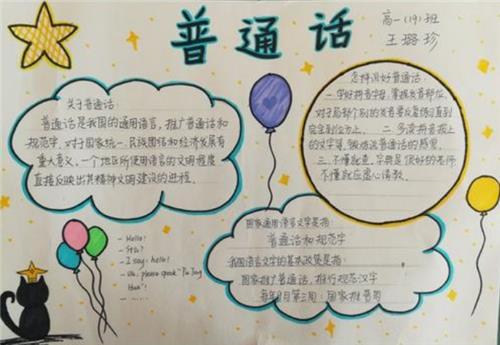 普通话
高一(19)班
王璐珍
关于普通话:
普通话是我国的通用语言,推广普通话和
规范字,对于国家统一、民族团结和经济发展有
重大意义,一个地区所使用语言的文明程度
直接反映出其精神文明建设的进程。
怎样说好普通话:
一.学好拼音字母,掌握发音部位,
对于局部个别的发音要反复练习直到
完全到位为止。二.多读拼音报上
的文字等,锻炼说普通话的感觉。
三.不懂就查,字典是很好的老师
不懂就应虚心请教。
- Hello!
- I say: hello!
- Uh, please speak "Pu Tong
Hua"!
- ......
国家通用语言文字是指:
普通话和规范字
我国语言文字的基本政策是指:
国家推广普通话,推行规范汉字
每年9月第三周:国家推普周